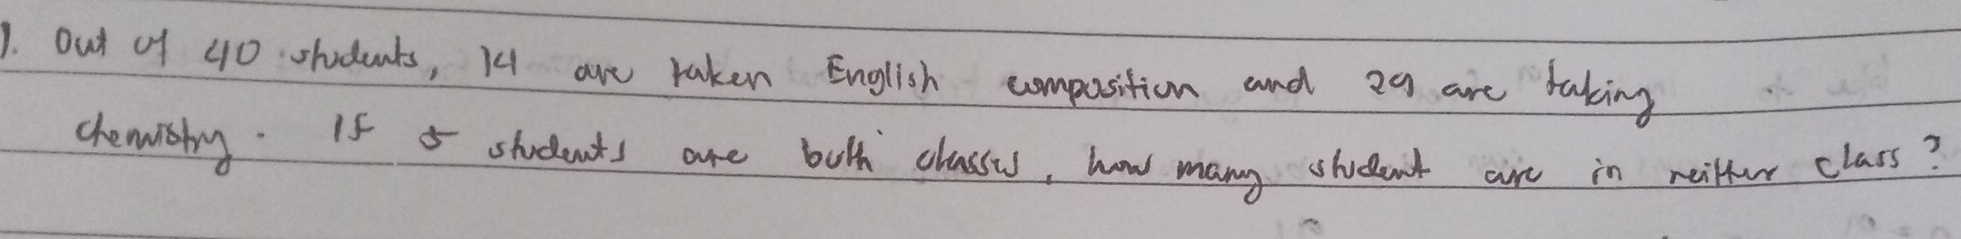 1. Out of 40 students, 14 are taken English composition and 29 are taking
chemistry. If 5 students are both classes, how many student are in neither class?